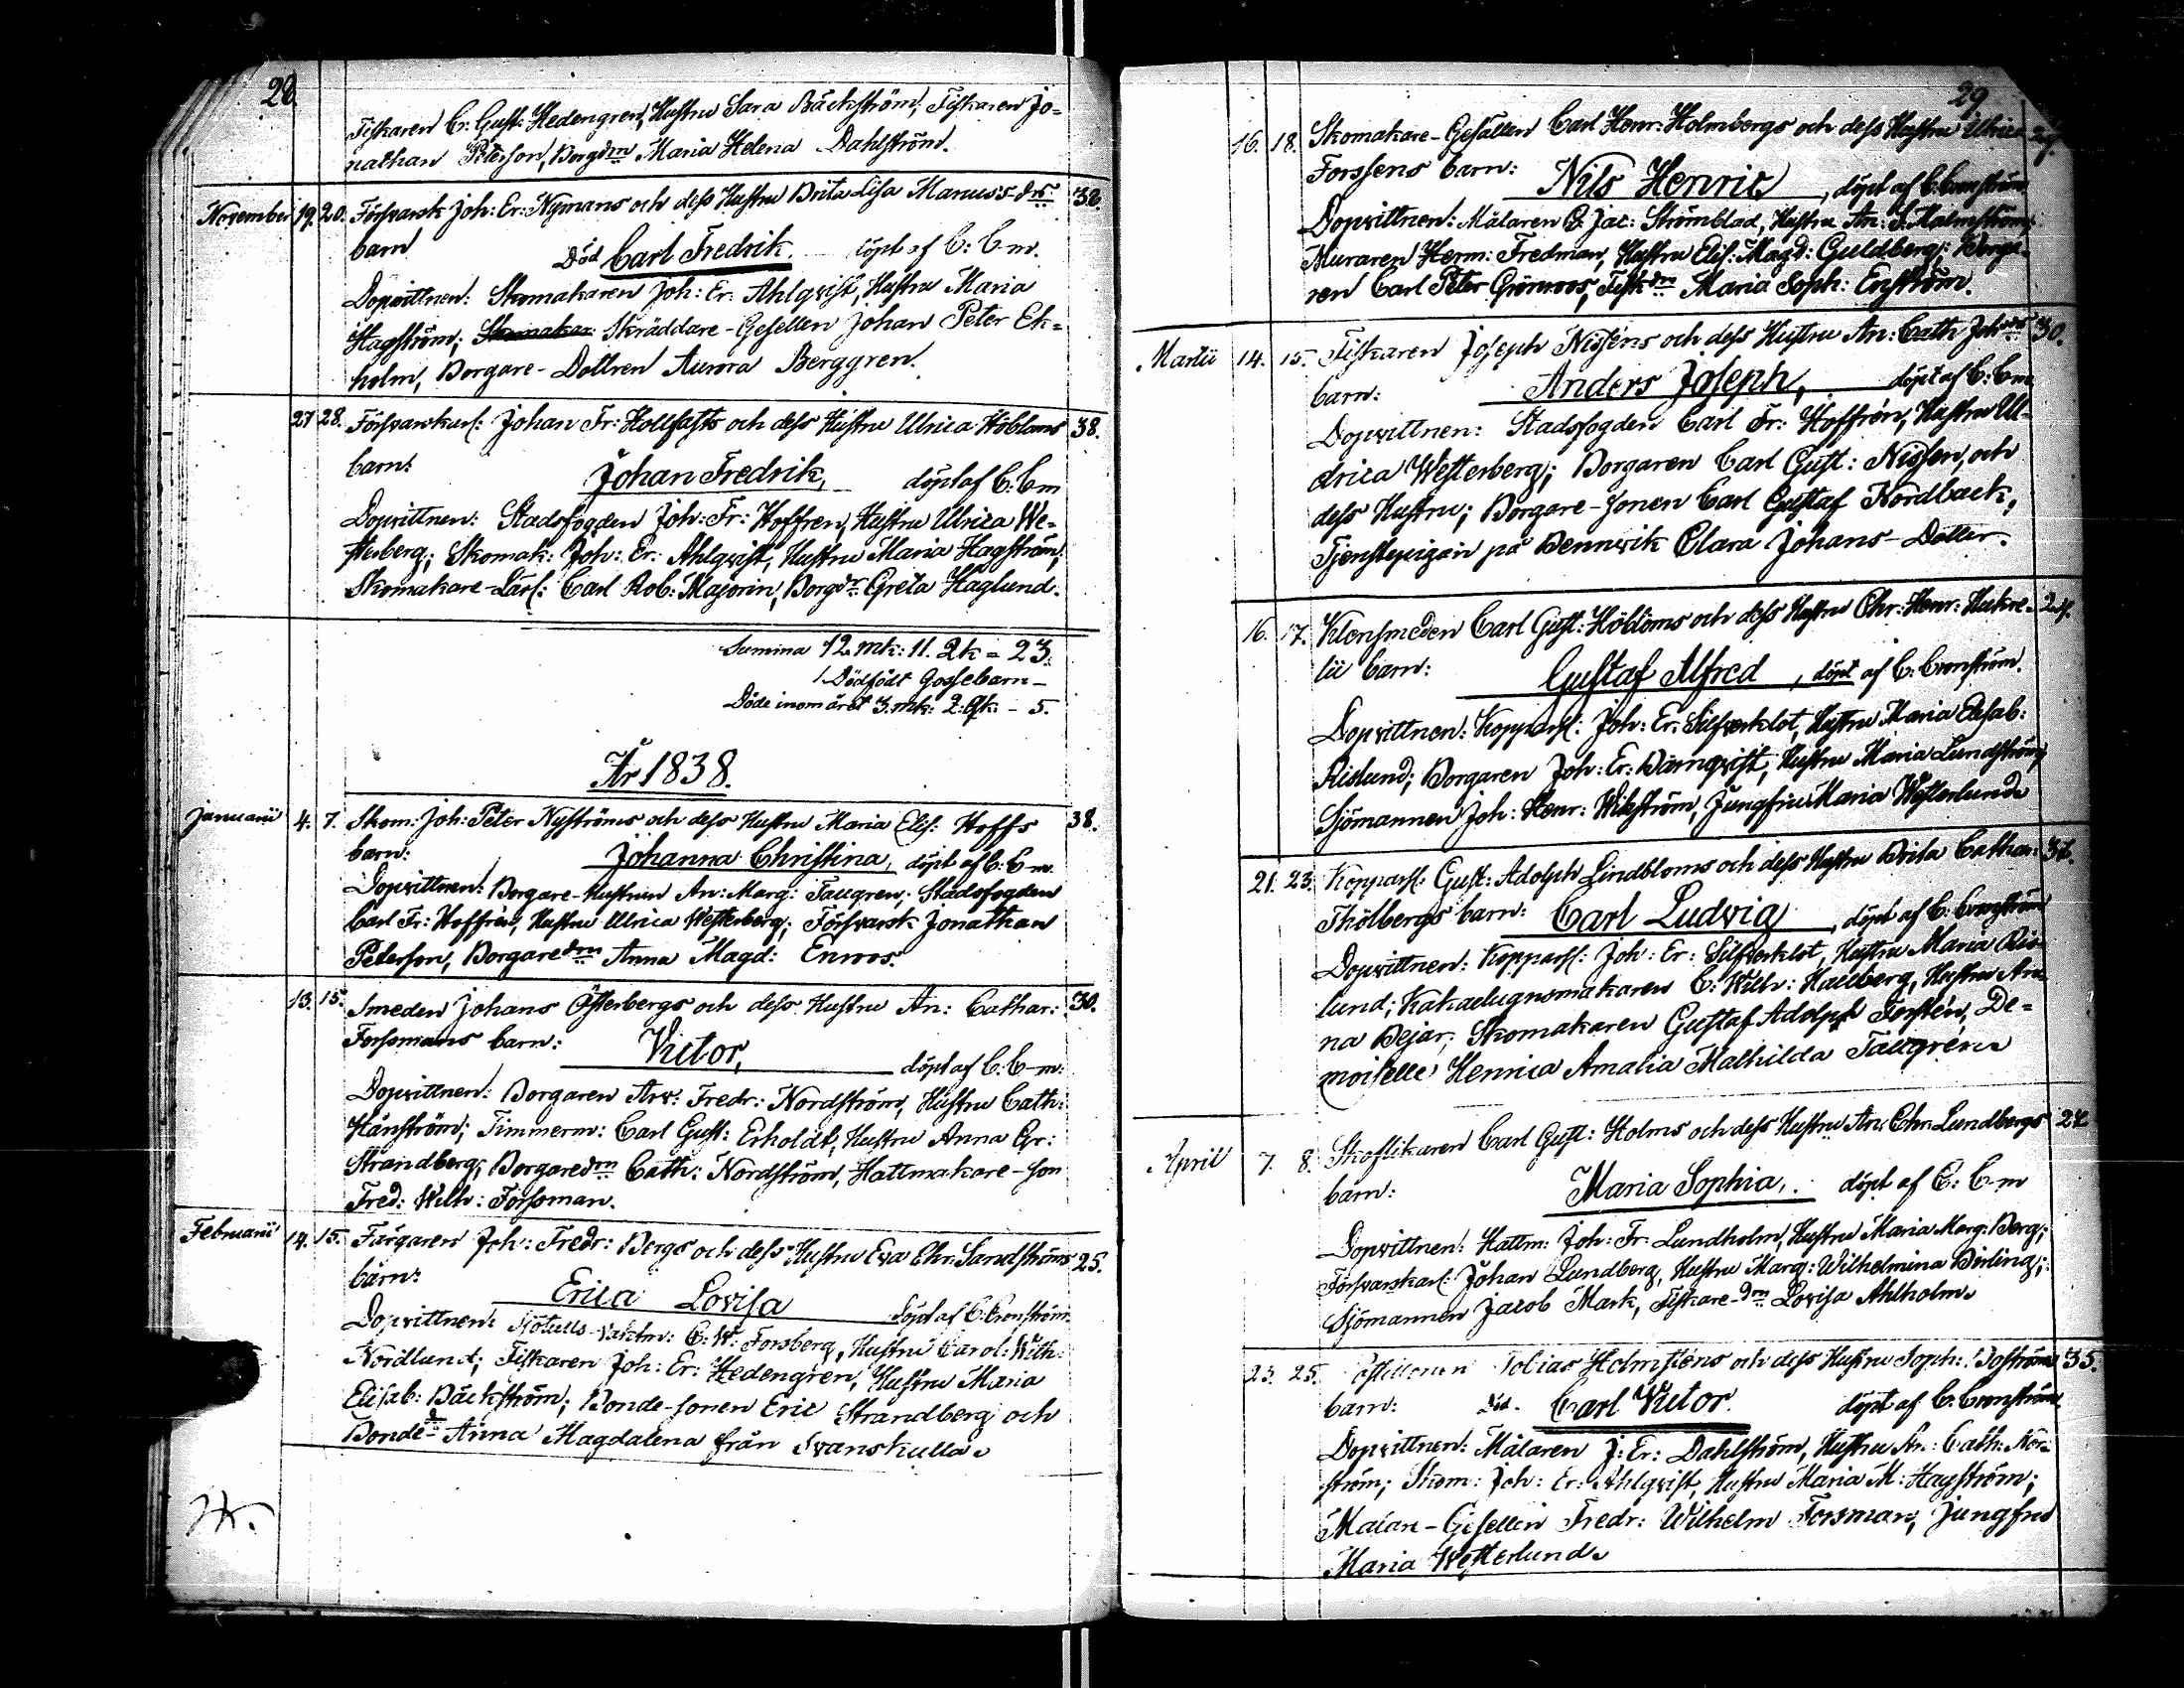 28
Fiskaren C: Gust: Hedengren, Hustru Sara Bäckström; Fiskaren Jo=
nathan Peterson, Borgdrn Maria Helena Dahlström.
November 19. 20. Försvarsk Joh: Er: Nymans och dess Hustru Brita Lisa Manuss-drs 38.
barn Död Carl Fredrik. döpt af C: C-m.
Dopvittnen: Skomakaren Joh: Er: Ahlqvist, Hustru Maria
Hagström; Skomakar: Skräddare-Gesellen Johan Peter Ek=
holm, Borgare-Dottren Aurora Berggren.
27 28. Försvarskarl: Johan Fr: Hollfasts och dess Hustru Ulrica Höbloms 38.
barn: Johan Fredrik, döpt af C: C-m
Dopvittnen: Stadsfogden Joh: Fr: Hoffren, Hustru Ulrica We=
sterberg; Skomak: Joh: Er: Ahlqvist, Hustru Maria Hagström;
Skomakare-Lärl: Carl Rob: Majorin, Borgdr Greta Haglund.
Summa 12 mk: 11. Qk = 23.
1 Dödfödt Gossebarn –
Döde inom året 3. mk: 2: Qk: – 5.
År 1838.
Januarii 4. 7. Skom: Joh: Peter Nyströms och dess Hustru Maria Elis: Hoffs 38.
barn: Johanna Christina, döpt af C: C-m.
Dopvittnen: Borgare-Hustrun An: Marg: Taugren; Stadsfogden
Carl Fr: Hoffrén, Hustru Ulrica Westerberg; Försvarsk Jonathan
Peterson, Borgaredrn Anna Magd: Enroos.
13. 15. Smeden Johans Österbergs och dess Hustru An: Cathar: 30.
Forssmans barn: Victor, döpt af C: C-m:
Dopvittnen: Borgaren Arv: Fredr: Nordström, Hustru Cath:
Hänström; Timmerm: Carl Gust: Erholdt, Hustru Anna Gr:
Strandberg; Borgaredrn Cath: Nordström, Hattmakare-son
Fred: Wilh: Forssman.
Februarii 14. 15. Färgaren Joh: Fredr: Bergs och dess Hustru Eva Chr: Sandströms 25.
barn: Erica Lovisa döpt af C: Cronström.
Dopvittnen: Sjötulls-vaktm: C: W: Forsberg, Hustru Carol: Wilh:
Nordlund; Fiskaren Joh: Er: Hedengren, Hustru Maria
Elisab: Bäckström; Bonde-sonen Eric Strandberg och
Bondedr Anna Magdalena från Svanskulla.
29
16. 18. Skomakare-Gesällen Carl Henr: Holmbergs och dess Hustru Ulrica
Forssens barn: Nils Henric, döpt af C: Cronström
Dopvittnen: Målaren C: Jac: Strömblad, Hustru An: S. Malmström;
Muraren Herm: Fredman, Hustru Elis: Magd: Guldberg; Borga-
ren Carl Peter Grönroos, Fiskdrn Maria Soph: Enström.
Martii 14. 15. Fiskaren Joseph Nissens och dess Hustru An: Cath Johsdrs 30.
barn: Anders Joseph, döpt af C: C-m
Dopvittnen: Stadsfogden Carl Fr: Hoffrén, Hustru Ul-
drica Westerberg; Borgaren Carl Gust: Nissen, och
dess Hustru; Borgare-sonen Carl Gustaf Nordback,
Tjenstepigan på Bennvik Clara Johans-Dotter.
16. 17. Klensmeden Carl Gust: Höbloms och dess Hustru Chr: Henr: Hukre- 24.
lii barn: Gustaf Alfred, döpt af C: Cronström.
Dopvittnen: Kopparsl: Joh: Er: Silfverklot, Hustru Maria Elisab:
Rislund; Borgaren Joh: Er: Bärnqvist, Hustru Maria Lundström;
Sjömannen Joh: Henr: Wikström, Jungfru Maria Westerlund
21. 23. Kopparsl: Gust: Adolph Lindbloms och dess Hustru Brita Cathar:
Thölbergs barn: Carl Ludvig, döpt af C: Cronström
Dopvittnen: Kopparsl: Joh: Er: Silfverklot, Hustru Maria Ris-
lund; Kakaelugnsmakaren C: Wilh: Hallberg, Hustru An-
na Bejar; Skomakaren Gustaf Adolph Forstén, De=
moiselle Henrica Amalia Mathilda Taugrén
April 7. 8. Skoflikaren Carl Gust: Holms och dess Hustru An: Chr: Lundbergs 24
barn: Maria Sophia, döpt af C: C-m
Dopvittnen: Hattm: Joh: Fr: Lundholm, Hustru Maria Marg: Berg;
Försvarskarl: Johan Lundberg, Hustru Marg: Wilhelmina Birling;
Sjömannen Jacob Mark, Fiskare-drn Lovisa Ahlholm.
23. 25. Postillionen Tobias Holmstens och dess Hustru Soph: Boströms 35.
barn: Död. Carl Victor. döpt af C. Cronström
Dopvittnen: Målaren J: Er: Dahlström, Hustru An: Cath: Nor-
ström; Skom: Joh: Er: Ahlqvist, Hustru Maria M: Hagström;
Målare-Gesellen Fredr: Wilhelm Forsman, Jungfru
Maria Westerlund.